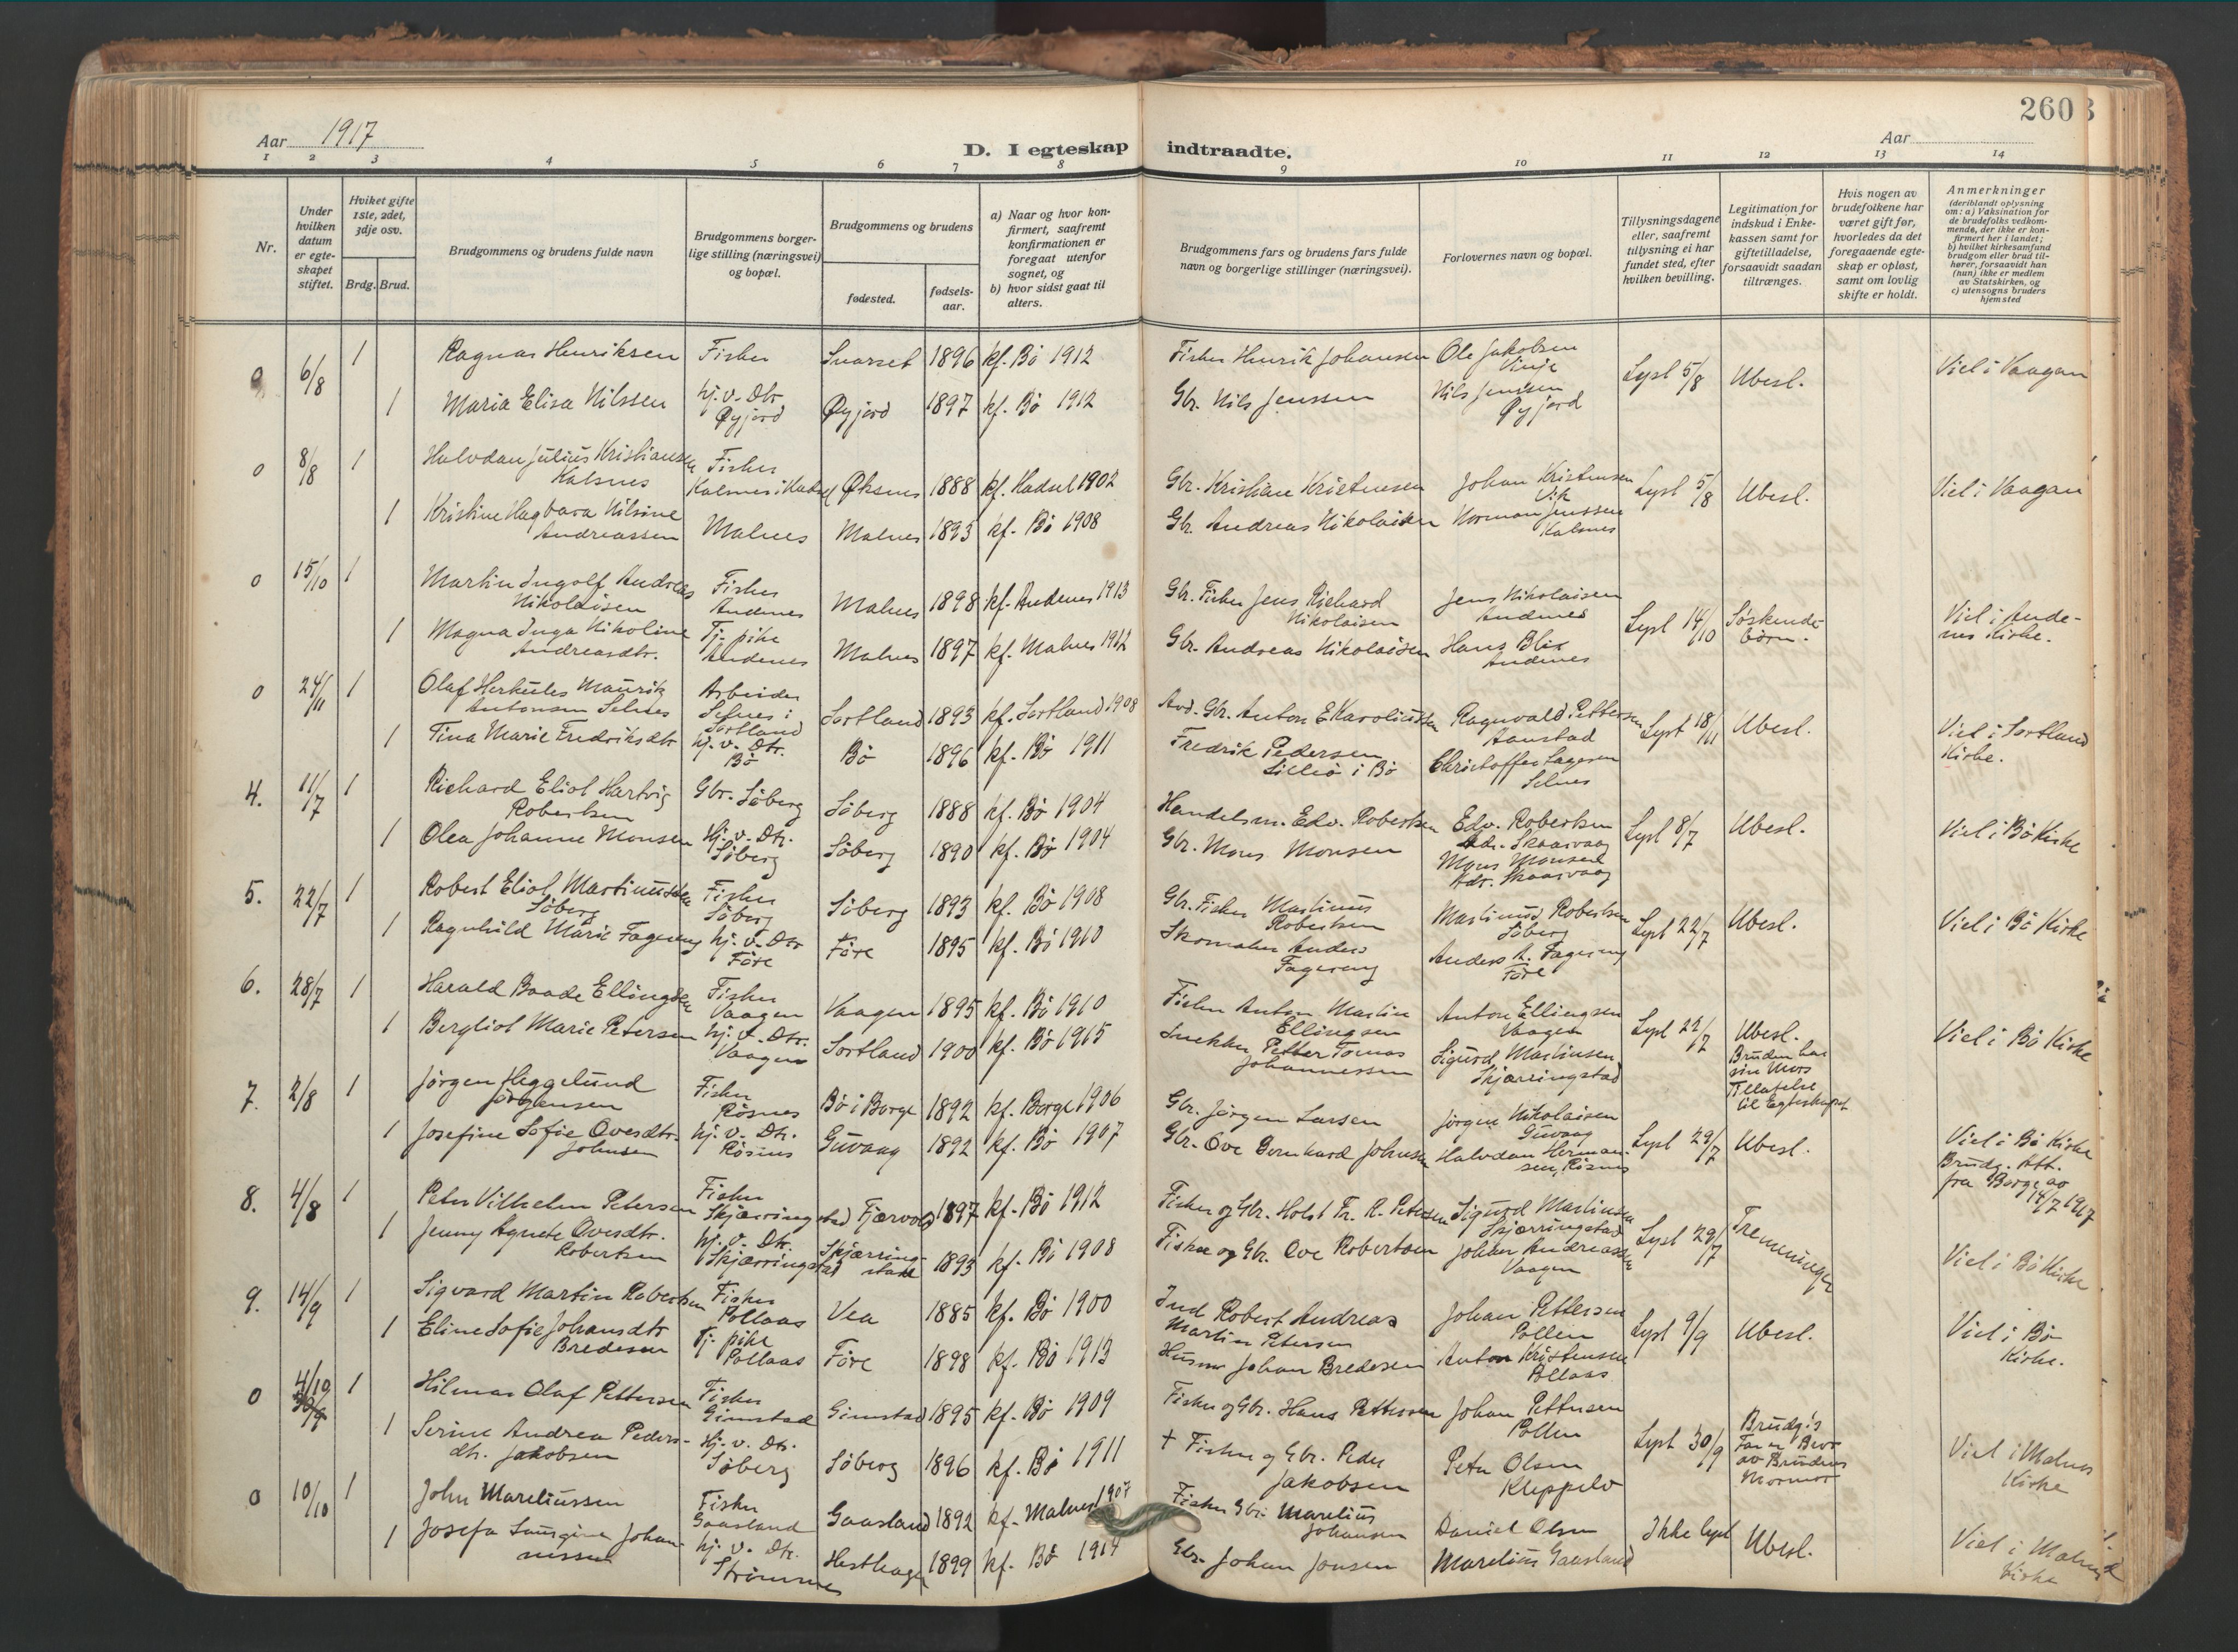 Aar 1917
D. I egteskap
indtraadte.
Aar
260
1 2 3 4 5 6 7 8 9 10 11 12 13 14
Nr.
Under hvilken datum er egteskapet stiftet.
Hviket gifte 1ste, 2det, 3dje osv.
Brdg. Brud.
Brudgommens og brudens fulde navn
Brudgommens borgerlige stilling (næringsvei) og bopæl.
Brudgommens og brudens
fødested.
fødselsaar.
a) Naar og hvor konfirmert, saafremt konfirmationen er foregaat utenfor sognet, og
b) hvor sidst gaat til alters.
Brudgommens fars og brudens fars fulde navn og borgerlige stillinger (næringsvei).
Forlovernes navn og bopæl.
Tillysningsdagene eller, saafremt tillysning ei har fundet sted, efter hvilken bevilling.
Legitimation for indskud i Enkekassen samt for giftetilladelse, forsaavidt saadan tiltrænges.
Hvis nogen av brudefolkene har været gift før, hvorledes da det foregaaende egteskap er opløst, samt om lovlig skifte er holdt.
Anmerkninger (deriblandt oplysning om: a) Vaksination for de brudefolks vedkommende, der ikke er konfirmert her i landet; b) hvilket kirkesamfund brudgom eller brud tilhører, forsaavidt han (hun) ikke er medlem av Statskirken, og c) utensogns bruders hjemsted
0 6/8 1 Ragnar Henriksen Fisker 1896 kf. Bø 1912 Fisker Henrik Johansen Ole Jakobsen Vinje Lyst 5/8 Ubesl. Viet i Vaagan
1 Maria Elisa Nilssen hj. v. Dtr. Øyjord Øyjord 1897 kf. Bø 1912 Gbr. Nils Jenssen Nils Jenssen Øyjord
0 8/8 1 Halvdan Julius Kristiansen Kalsnes Fisker Kalsnes i Hadsel Øksnes 1888 kf. Hadsel 1902 Gbr. Kristian Kristensen Johan Kristensen Vik Lyst 5/8 Ubesl. Viet i Vaagan
1 Kristine Hagbara Nilsine Andreassen Malnes Malnes 1893 kf. Bø 1908 Gbr. Andreas Nikolaisen Norman Jenssen Kalsnes
0 15/10 1 Martin Ingolf Andreas Nikolaisen Fisker Andenes Malnes 1898 kf. Andenes 1913 Gbr. Fisker Jens Richard Nikolaisen Jens Nikolaisen Andenes Lyst 14/10 Søskendebørn. Viet i Andenes Kirke.
1 Magna Inga Nikoline Andreasdtr. Tj. pike Andenes Malnes 1897 kf. Malnes 1912 Gbr. Andreas Nikolaisen Hans Blix Andenes
0 24/11 1 Olaf Herkules Maurik Antonsen Selnes Arbeider Selnes i Sortland Sortland 1893 kf. Sortland 1908 Avd. Gbr. Anton E Karoliussen Ragnvald Pettersen Aanstad Lyst 18/11 Ubesl. Viet i Sortland Kirke.
1 Tina Marie Fredriksdtr hj. v. Dtr. Bø Bø 1896 kf. Bø 1911 Fredrik Pedersen i Bø Christoffer Selnes
4. 11/7 1 Richard Eliot Hartvig Robertsen Gbr. Söberg Söberg 1888 kf. Bø 1904 Handelsm. Edv. Robertsen Edv. Robertsen Adr. Skaarvaag Lyst 8/7 Ubesl. Viet i Bø Kirke
1 Olea Johanne Monsen Hj. v. Dtr. Söberg Söberg 1890 kf. Bø 1904 Gbr. Mons Monsen Mons Monsen Adr. Skaarvaag
5. 22/7 1 Robert Eliot Martinussen Söberg Fisker Söberg Söberg 1893 kf. Bø 1908 Gbr. Fisker Martinus Robertsen Martinus Robertsen Söberg Lyst 22/7 Ubesl. Viet i Bø Kirke
1 Ragnhild Marie Fagereng hj. v. Dtr Före Före 1895 kf. Bø 1910 Skomaker Anders Fagereng Anders A. Fagereng Före
6. 28/7 1 Harald Baade Ellingsen Fisker Vaagen Vaagen 1895 kf. Bø 1910 Fisker Anton Martin Ellingsen Anton Ellingsen Vaagen Lyst 22/7 Ubesl. Bruden har sin Mors Tilladelse til Egteskapet Viet i Bø Kirke
1 Bergliot Marie Petersen hj. v. Dtr. Vaagen Sortland 1900 kf. Bø 1915 Snekker Petter Tomas Johannessen Sigurd Martinsen Skjærringstad
7. 2/8 1 Jørgen Heggelund Jørgensen Fisker Røsnes Bø i Borge 1892 kf. Borge 1906 Gbr. Jørgen Larsen Jørgen Nikolaisen Guvaag Lyst 29/7 Ubesl. Viet i Bø Kirke Brudg. Att. fra Borge av 14/7 1917
1 Josefine Sofie Ovesdtr. Johnsen hj. v. Dtr. Røsnes Guvaag 1892 kf. Bø 1907 Gbr. Ove Bernhard Johnsen Halvdan Hermansen, Røsnes
8. 4/8 1 Peter Vilhelm Petersen Fisker Skjærringstad Fjærvold 1897 kf. Bø 1912 Fisker og Gbr. Holst Fr. R. Petersen Sigurd Martinsen Skjærringstad Lyst 29/7 Tremeninger Viet i Bø Kirke
1 Jenny Agnete Ovesdtr. Robertsen hj. v. Dtr. Skjærringstad Skjærringstad 1893 kf. Bø 1908 Fisker og Gbr. Ove Robertsen Johan Andreassen Vaagen
9. 14/9 1 Sigvard Martin Robertsen Fisker Pollaas Vea 1885 kf. Bø 1900 Ind Robert Andreas Martin Petersen Johan Pettersen Pollen Lyst 9/9 Ubesl. Viet i Bø Kirke.
1 Eline Sofie Johansdtr Bredesen Tj. pike Pollaas Före 1898 kf. Bø 1913 Husm Johan Bredesen Anton Kristensen Pollaas
0 4/10 30/9 1 Hilmar Olaf Pettersen Fisker Gimstad Gimstad 1895 kf. Bø 1909 Fisker og Gbr. Hans Pettersen Johan Pettersen Pollen Lyst 30/9 Brudg's Far er Bror av Brudens Mormor Viet i Malnes Kirke
1 Serine Andrea Pedersdtr. Jakobsen Hj. v. Dtr. Söberg Söberg 1896 kf. Bø 1911 + Fisker og Gbr. Peder Jakobsen Peter Olsen Kleppelv
0 10/10 1 John Mareliussen Fisker Gaasland Gaasland 1892 kf. Malnes 1907 Fisker Gbr. Marelius Johansen Daniel Olsen Ikke lyst Ubesl. Viet i Malnes Kirke
1 Josefa Johannessen hj. v. Dtr. Strömmes Hesthagen 1899 kf. Bø 1914 Gbr. Johan Jonsen Marelius Gaasland